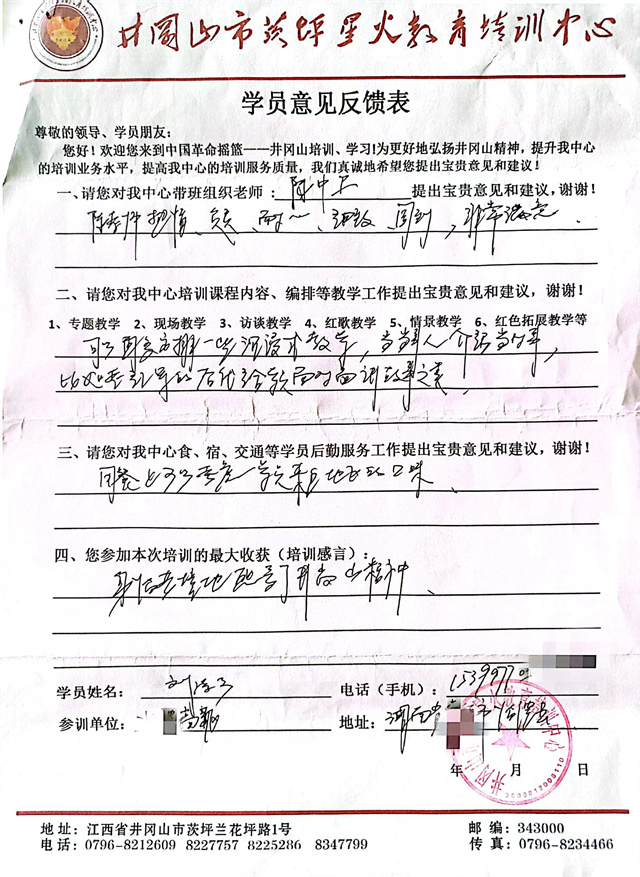 井冈山市茨坪星火教育培训中心
学员意见反馈表
尊敬的领导、学员朋友:
您好!欢迎您来到中国革命摇篮——井冈山培训、学习!为更好地弘扬井冈山精神,提升我中心
的培训业务水平,提高我中心的培训服务质量,我们真诚地希望您提出宝贵意见和建议!
一、请您对我中心带班组织老师: 陈中 提出宝贵意见和建议,谢谢!
陈老师热情、负责、耐心、细致、周到,非常满意
二、请您对我中心培训课程内容、编排等教学工作提出宝贵意见和建议,谢谢!
1、专题教学 2、现场教学 3、访谈教学 4、红歌教学 5、情景教学 6、红色拓展教学等
可以 安排一些沉浸式教学,当事人介绍当年,
比如 的后代 面对面讲故事
三、请您对我中心食、宿、交通等学员后勤服务工作提出宝贵意见和建议,谢谢!
用餐上可以考虑学员来自地方的口味、
四、您参加本次培训的最大收获(培训感言):
身临其境地 了井冈山精神、
学员姓名: 刘 电话(手机):
参训单位: 地址: 河南 市
年 月 日
地址:江西省井冈山市茨坪兰花坪路1号 邮编:343000
电话:0796-8212609 8227757 8225286 8347799 传真:0796-8234466